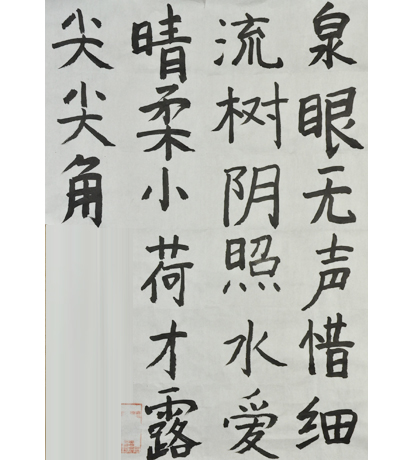 泉眼无声惜细
流树阴照水爱
晴柔小荷才露
尖尖角